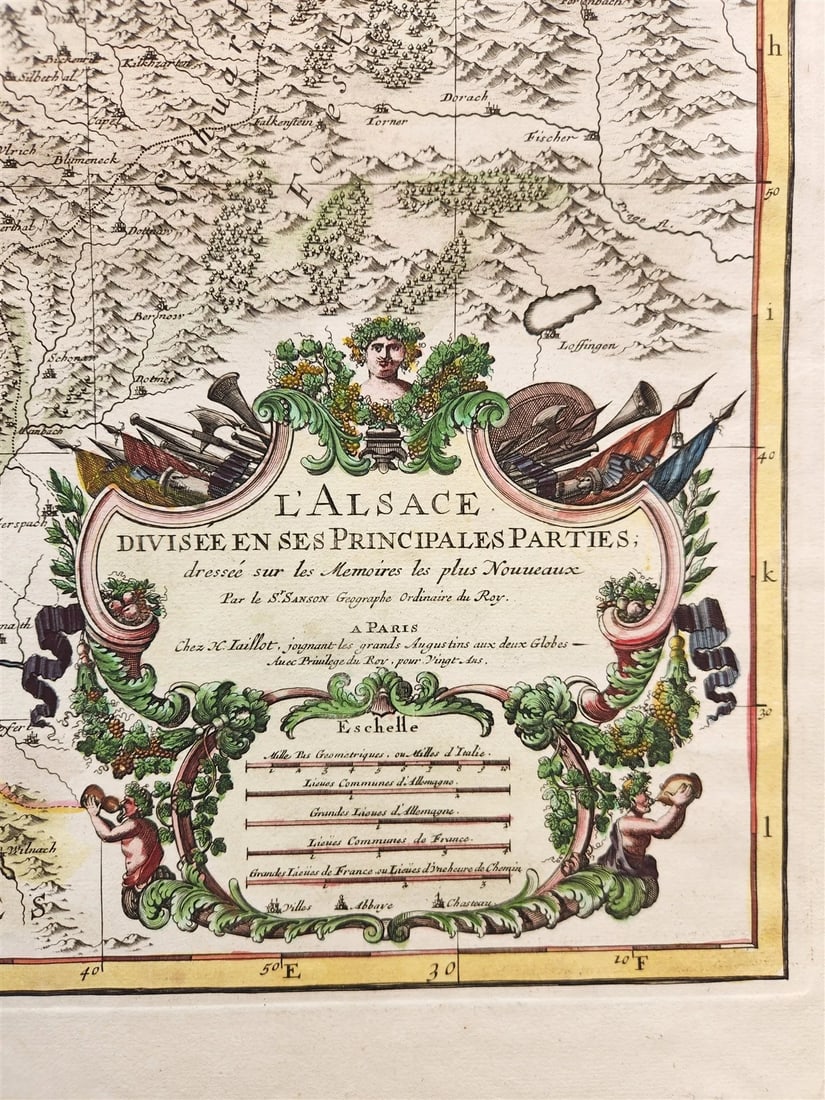 Kilkhzarten
Silbethal
Capel
Falkenstein
Torner
Dorach
Fischer
h
Schwart
Forest
Blumeneck
50
Dottnaw
Bernow
i
Loffingen
Schonaw
Dotmes
40
L'ALSACE.
DIVISEÉ EN SES PRINCIPALES PARTIES;
dresseé sur les Memoires les plus Nouueaux
Par le Sr. SANSON Geographe Ordinaire du Roy.
k
A PARIS
Chez H. Iaillot, joignant les grands Augustins aux deux Globes
Auec Priuilege du Roy, pour Vingt Ans.
30
Eschelle
Mille Pas Geometriques, ou Milles d'Italie.
1 2 3 4 5 6 7 8 9 10
Lieues Communes d'Allemagne.
Grandes Lieues d'Allemagne.
Lieües Communes de France.
Grandes Lieües de France ou Lieües d'Vne heure de Chemin
l
Wilnach
S
Villes Abbaye Chasteau
40 50 E 30 10 F